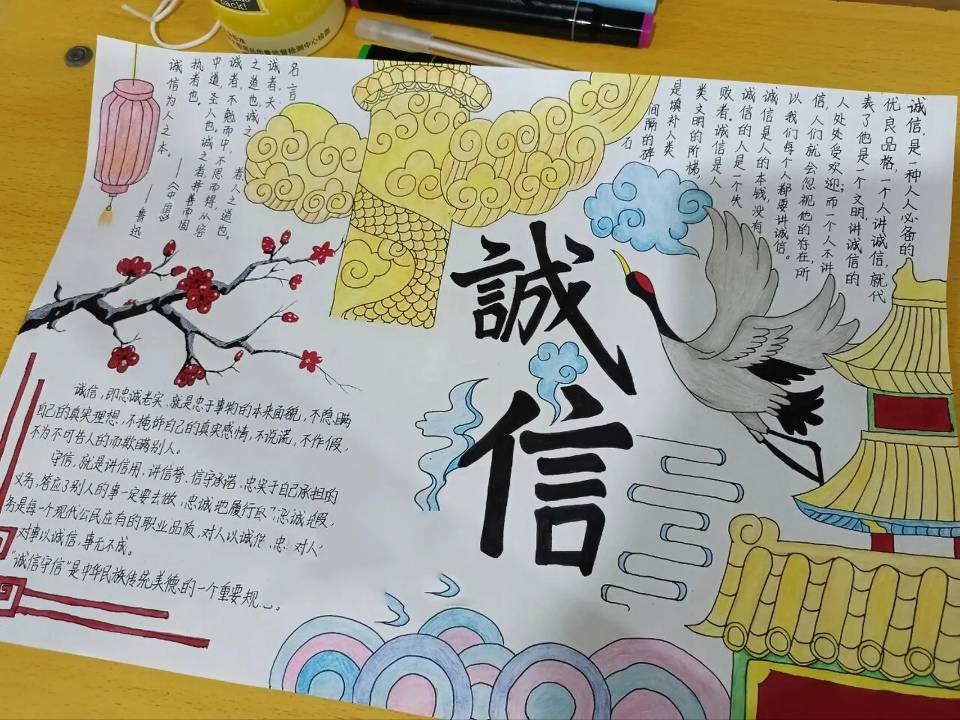 誠信
名言
诚者，天
之道也；诚之
者，人之道也。
诚者，不勉而中，不思而得，从容
中道，圣人也。诚之者，择善而固
执者也。
——《中庸》
诚信为人之本。
——鲁迅
诚信，是一种人人必备的
优良品格，一个人讲诚信，就代
表了他是一个文明，讲诚信的
人处处受欢迎；而一个人不讲
信，人们就会忽视他的存在，所
以我们每个人都要讲诚信。
诚信是人的本钱，没有
诚信的人是一个失
败者。诚信是人
类文明的阶梯
是填补人类
间隔的砖
石
诚信，即忠诚老实，就是忠于事物的本来面貌，不隐瞒
自己的真实理想，不掩饰自己的真实感情，不说谎，不作假，
不为不可告人的而欺瞒别人。
守信，就是讲信用，讲信誉，信守承诺，忠实于自己承担的
义务，答应了别人的事一定要去做，忠诚地履行 忠诚地假，
务是每一个现代公民应有的职业品质，对人以诚信，忠 对人
对事以诚信，事无不成。
“诚信守信”是中华民族传统美德的一个重要规
back!
监督检测中心检测